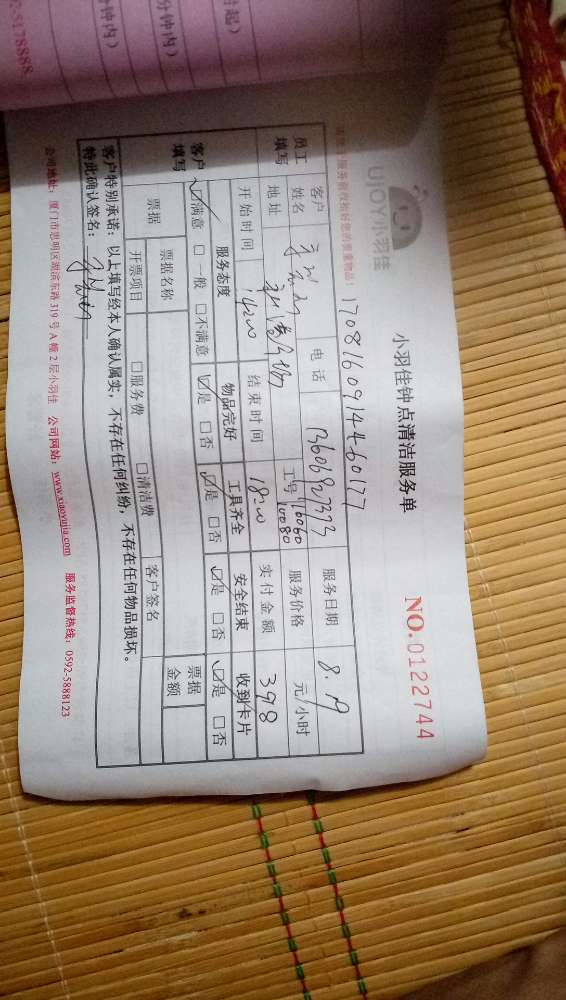 UJOY小羽佳
小羽佳钟点清洁服务单
NO.0122744
1708160914460177
员工填写
客户姓名
电话
服务日期 8.19
地址
工号 16060 10080
服务价格 元/小时
开始时间 14:00
结束时间 18:00
实付金额 398
客户填写
服务态度 物品完好 工具齐全 安全结束 收到卡片
☑满意 □一般 □不满意 ☑是 □否 ☑是 □否 ☑是 □否 ☑是 □否
票据
票据名称
票据金额
开票项目 □服务费 □清洁费 客户签名
客户特别承诺：以上填写经本人确认属实，不存在任何纠纷，不存在任何物品损坏。
特此确认签名：
公司地址：厦门市思明区湖滨东路319号A幢2层小羽佳 公司网站：www.xiaoyujia.com 服务监督热线：0592-5888123